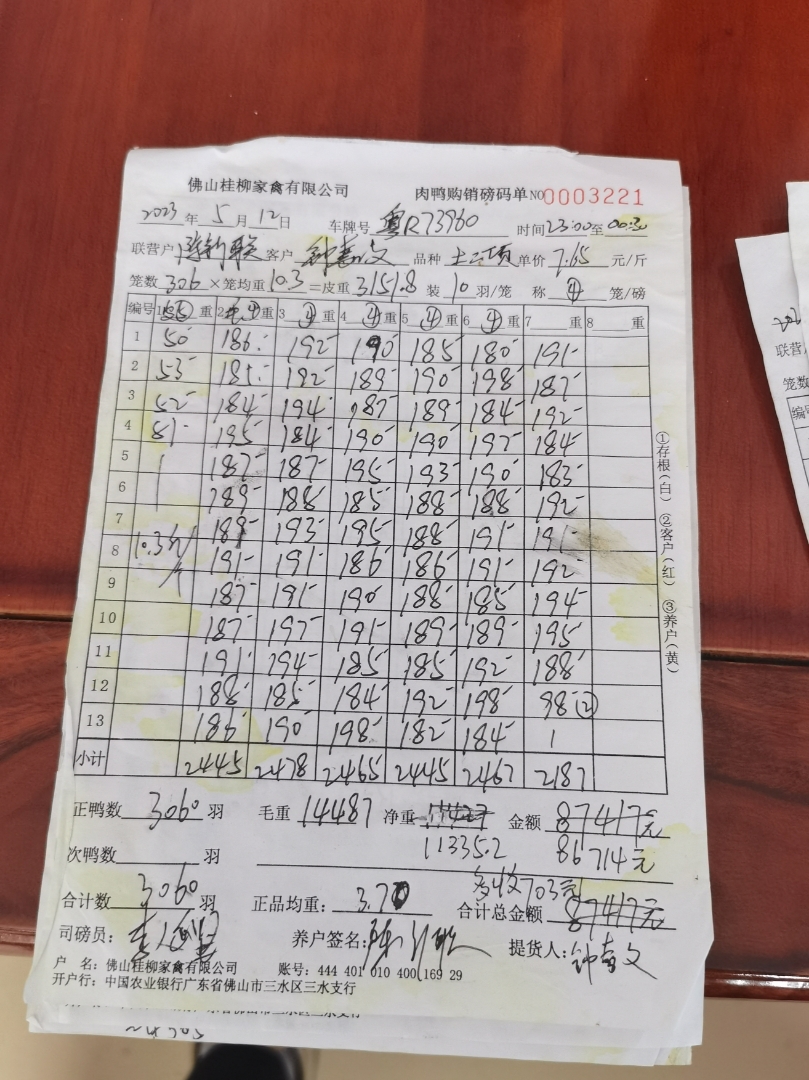 佛山桂柳家禽有限公司 肉鸭购销磅码单 NO 0003221
2023年5月12日 车牌号 粤R73960 时间23:00至00:30
联营户 客户 品种 土二项 单价 7.65 元/斤
笼数 306 ×笼均重 10.3 =皮重 3151.8 装 10 羽/笼 称 ④ 笼/磅
编号 1 重 2 ④ 重 3 ④ 重 4 ④ 重 5 ④ 重 6 ④ 重 7 重 8 重
1 50 186 192 190 185 180 191
2 53 185 192 189 190 198 187
3 52 184 194 187 189 184 192
4 51 195 184 190 190 197 184
5 187 187 195 193 190 183
6 189 188 185 188 188 192
7 189 193 195 188 191 191
8 10.3斤/ 191 191 186 186 191 192
9 187 191 190 188 185 194
10 187 197 191 189 189 195
11 191 194 185 185 192 188
12 188 185 184 192 198 98②
13 186 190 198 182 184
小计 2445 2478 2465 2445 2467 2187
正鸭数 3060 羽 毛重 14487 净重 金额 87417元
次鸭数 羽 11335.2 86714元
多收703元
合计数 3060 羽 正品均重: 3.70 合计总金额 87417元
司磅员: 养户签名: 提货人:
户 名: 佛山桂柳家禽有限公司 账号: 444 401 010 400 169 29
开户行: 中国农业银行广东省佛山市三水区三水支行
①存根(白) ②客户(红) ③养户(黄)
联营
笼数
编号